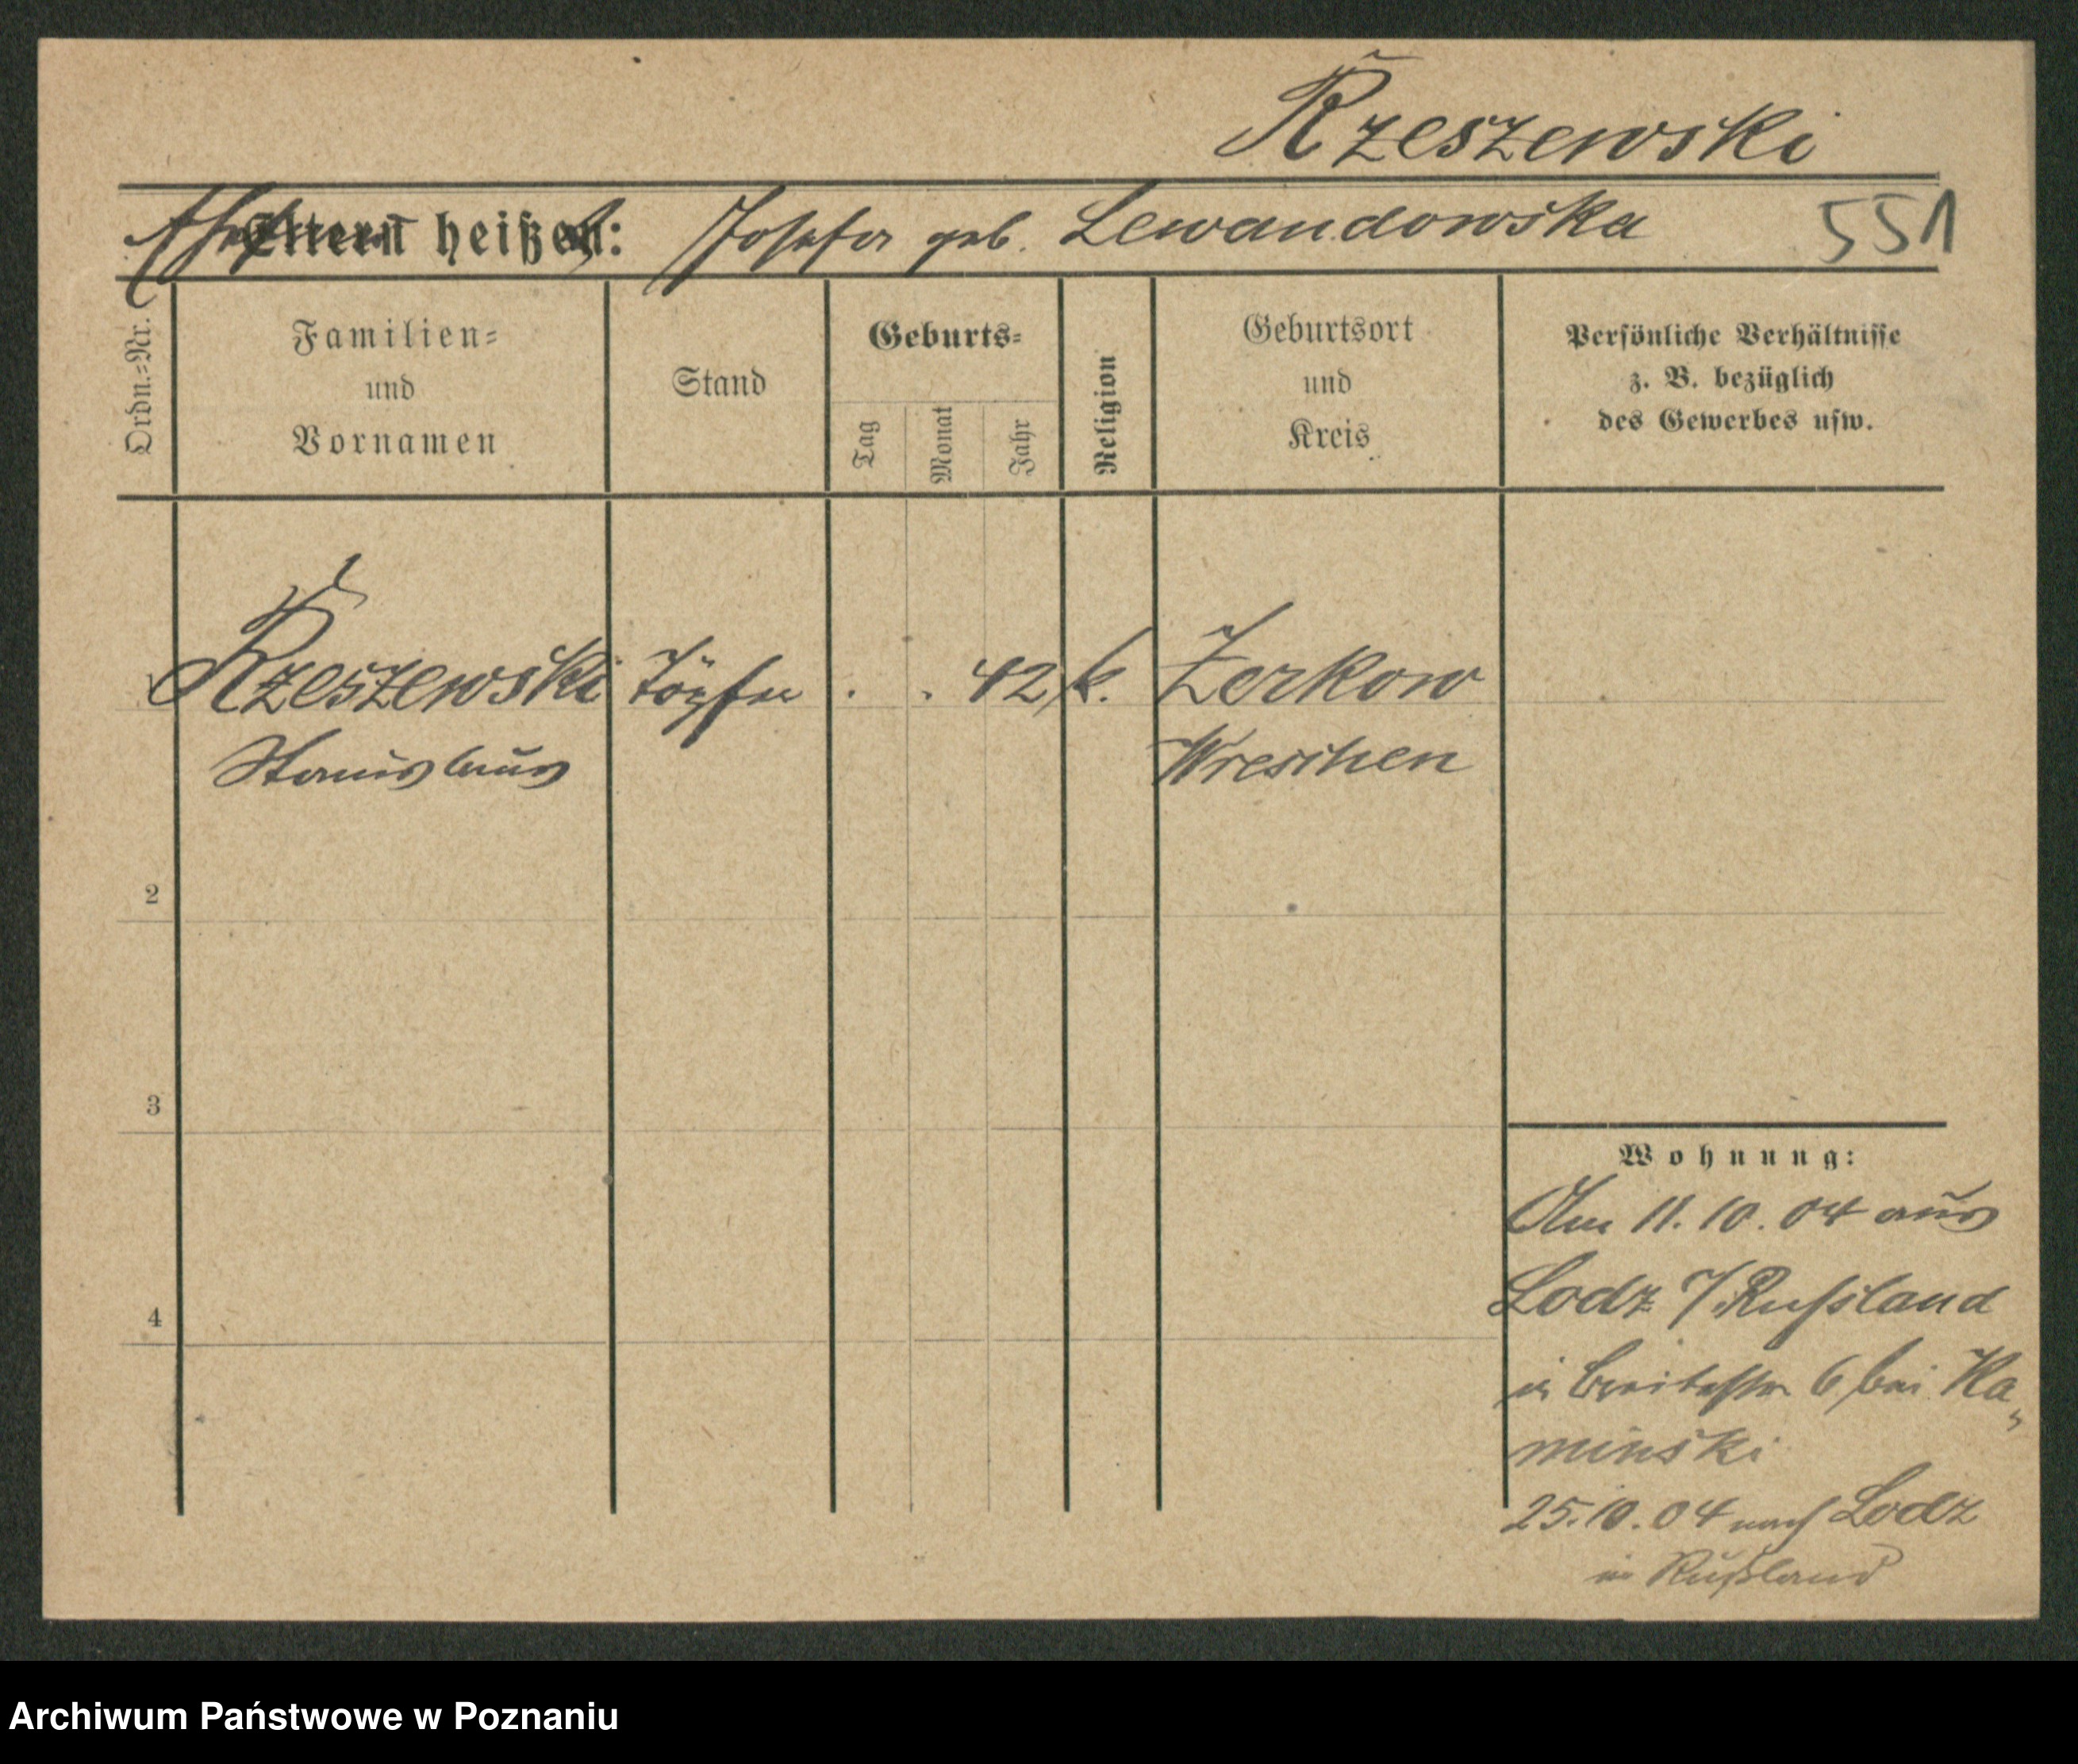 Rzeszewski
Ehefrau heißt: Josefa geb. Lewandowska 551
Ordn.=Nr.
Familien=
und
Vornamen
Stand
Geburts=
Tag
Monat
Jahr
Religion
Geburtsort
und
Kreis
Persönliche Verhältnisse
z. B. bezüglich
des Gewerbes usw.
Rzeszewski Töpfer . . 42 k. Zerkow
Stanislaus Wreschen
2
3
4
Wohnung:
Am 11.10.04 aus
Lodz i/Rußland
in Breitestr 6 bei Ka„
minski
25.10.04 nach Lodz
in Rußland
Archiwum Państwowe w Poznaniu